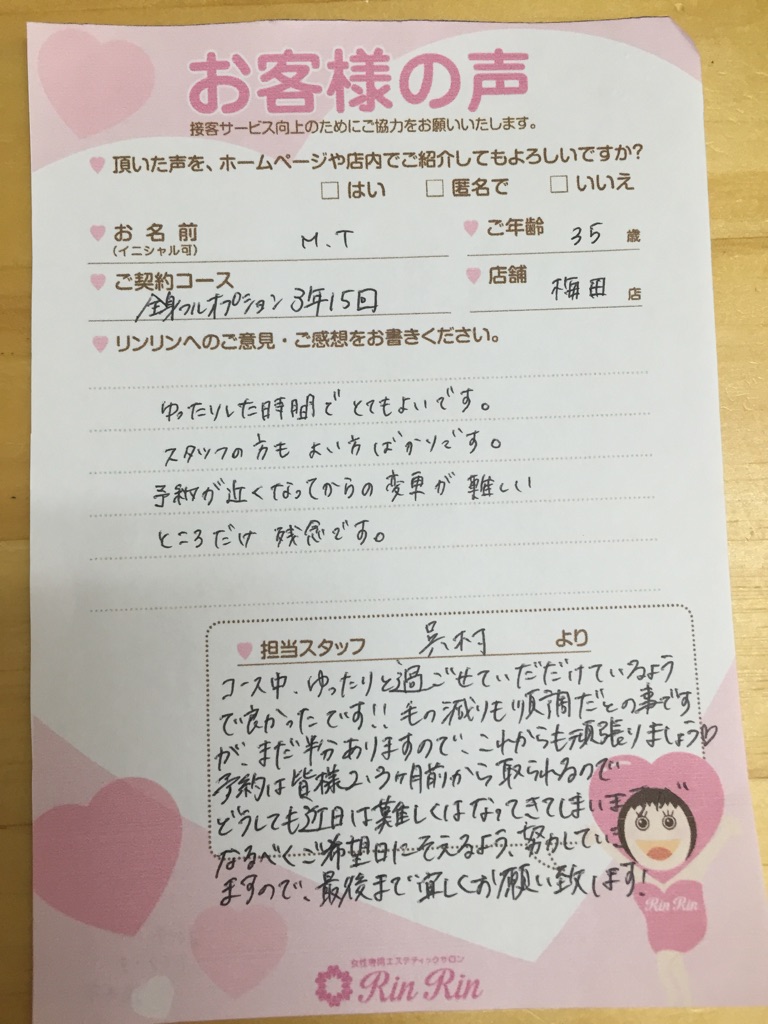 お客様の声
接客サービス向上のためにご協力をお願いいたします。
頂いた声を、ホームページや店内でご紹介してもよろしいですか?
□ はい □ 匿名で □ いいえ
お名前 M.T
(イニシャル可)
ご年齢 35 歳
ご契約コース
全身フルオプション3年15回
店舗 梅田 店
リンリンへのご意見・ご感想をお書きください。
ゆったりした時間でとてもよいです。
スタッフの方もよい方ばかりです。
予約が近くなってからの変更が難しい
ところだけ残念です。
担当スタッフ 呉村 より
コース中、ゆったりと過ごせていだだけているよう
で良かったです!!毛の減りも順調だとの事です
が、まだ半分ありますので、これからも頑張りましょう♡
予約は皆様2、3ヶ月前から取られるので
どうしても近日は難しくはなってきてしまいますが
なるべくご希望日にそえるよう、努力していき
ますので、最後まで宜しくお願い致します!
Rin Rin
女性専門エステティックサロン
Rin Rin